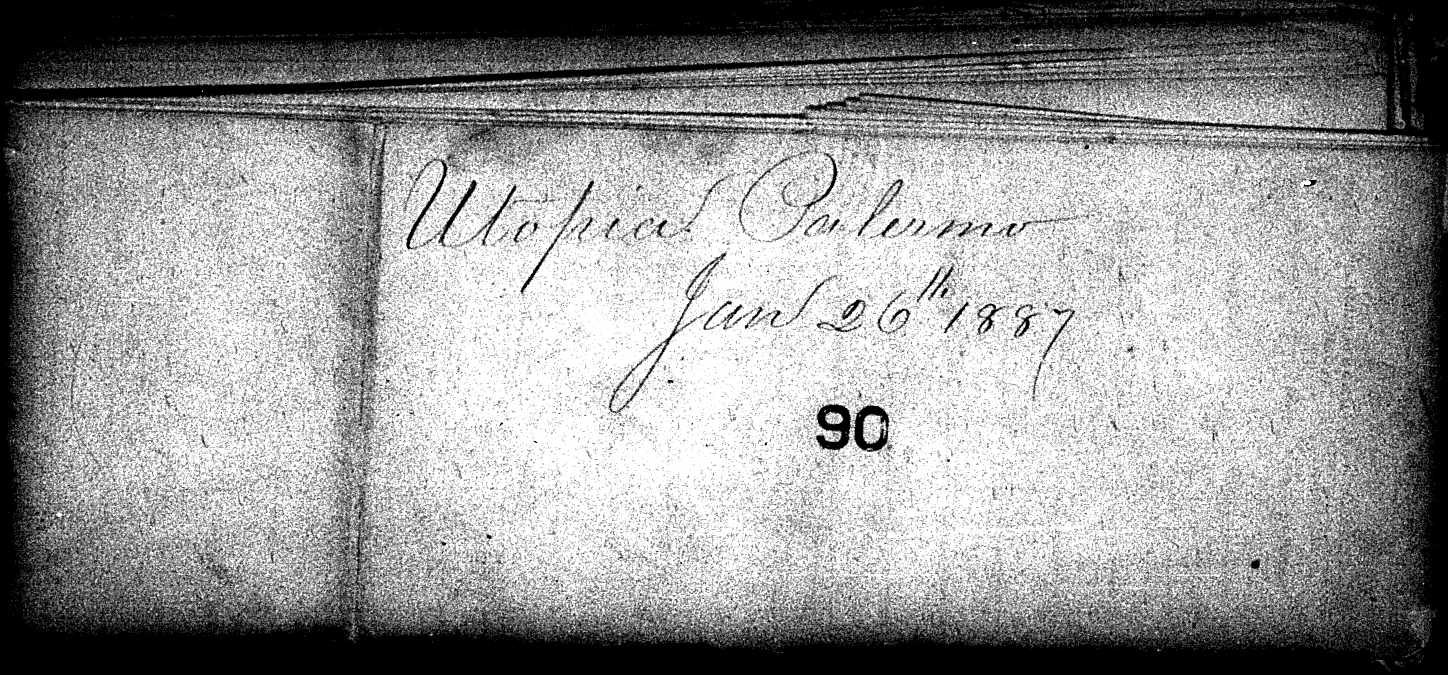 Utopia Palermo
Jan 26th 1887
90